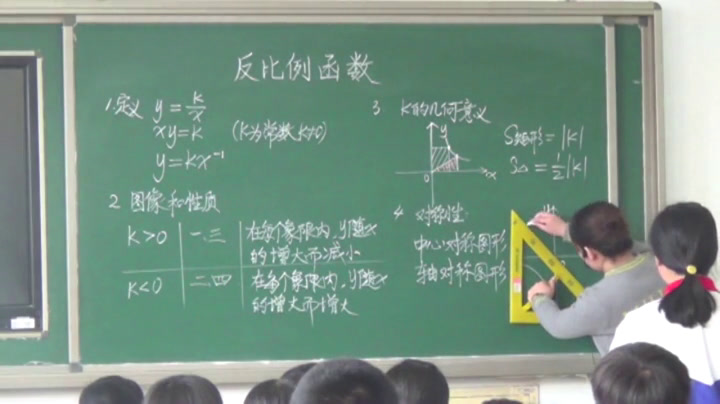 反比例函数
1.定义 y = k/x
xy = k (k为常数 k≠0)
y = kx⁻¹
2 图像和性质
k>0 一.三 在每个象限内,y随x
的增大而减小
k<0 二四 在每个象限内,y随x
的增大而增大
3 k的几何意义
y
0 x
S矩形 = |k|
S△ = ½|k|
4 对称性:
中心对称图形
轴对称图形